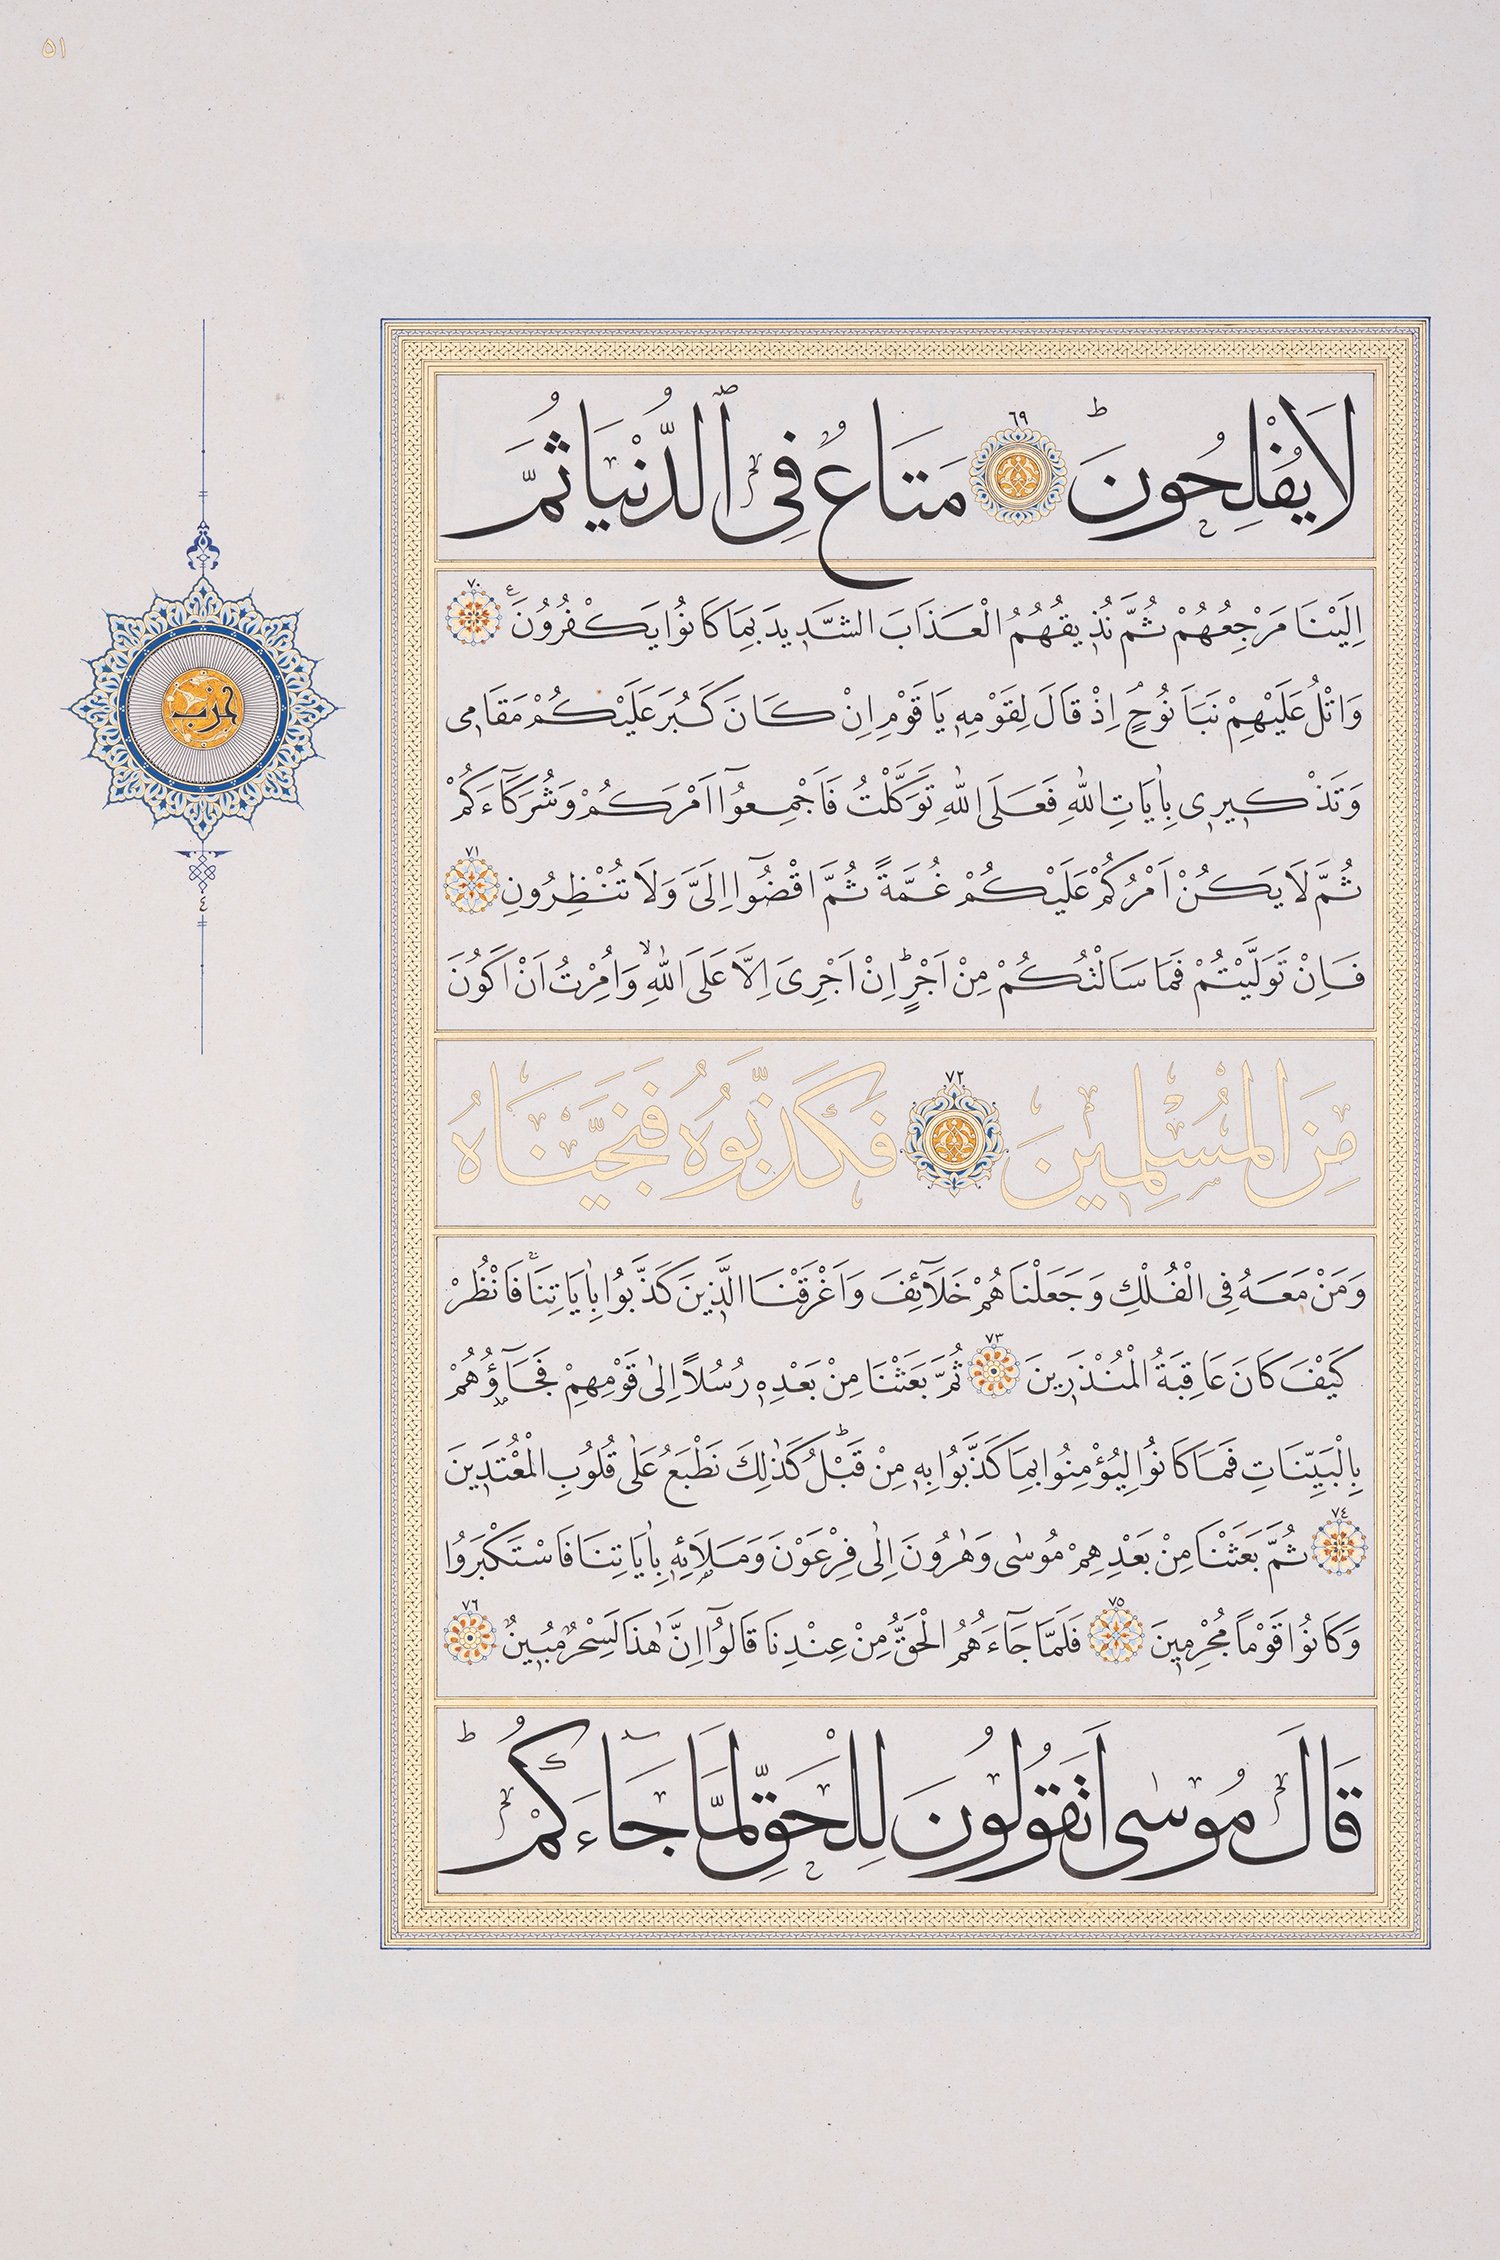 ٥١
لَا يُفْلِحُونَ ؕ ٦٩ مَتَاعٌ فِى ٱلدُّنْيَا ثُمَّ
اِلَيْنَا مَرْجِعُهُمْ ثُمَّ نُذ۪يقُهُمُ الْعَذَابَ الشَّد۪يدَ بِمَا كَانُوا يَكْفُرُونَ ٧٠
وَاتْلُ عَلَيْهِمْ نَبَاَ نُوحٍۢ اِذْ قَالَ لِقَوْمِه۪ يَا قَوْمِ اِنْ كَانَ كَبُرَ عَلَيْكُمْ مَقَام۪ى
وَتَذْك۪ير۪ى بِاٰيَاتِ اللّٰهِ فَعَلَى اللّٰهِ تَوَكَّلْتُ فَاَجْمِعُٓوا اَمْرَكُمْ وَشُرَكَٓاءَكُمْ
ثُمَّ لَا يَكُنْ اَمْرُكُمْ عَلَيْكُمْ غُمَّةً ثُمَّ اقْضُٓوا اِلَىَّ وَلَا تُنْظِرُونِ ٧١
فَاِنْ تَوَلَّيْتُمْ فَمَا سَاَلْتُكُمْ مِنْ اَجْرٍؕ اِنْ اَجْرِىَ اِلَّا عَلَى اللّٰهِۙ وَاُمِرْتُ اَنْ اَكُونَ
مِنَ الْمُسْلِم۪ينَ ٧٢ فَكَذَّبُوهُ فَنَجَّيْنَاهُ
وَمَنْ مَعَهُ فِى الْفُلْكِ وَجَعَلْنَاهُمْ خَلَٓائِفَ وَاَغْرَقْنَا الَّذ۪ينَ كَذَّبُوا بِاٰيَاتِنَاۚ فَانْظُرْ
كَيْفَ كَانَ عَاقِبَةُ الْمُنْذَر۪ينَ ٧٣ ثُمَّ بَعَثْنَا مِنْ بَعْدِه۪ رُسُلًا اِلٰى قَوْمِهِمْ فَجَٓاؤُ۫هُمْ
بِالْبَيِّنَاتِ فَمَا كَانُوا لِيُؤْمِنُوا بِمَا كَذَّبُوا بِه۪ مِنْ قَبْلُؕ كَذٰلِكَ نَطْبَعُ عَلٰى قُلُوبِ الْمُعْتَد۪ينَ
٧٤ ثُمَّ بَعَثْنَا مِنْ بَعْدِهِمْ مُوسٰى وَهٰرُونَ اِلٰى فِرْعَوْنَ وَمَلَا۬ئِه۪ بِاٰيَاتِنَا فَاسْتَكْبَرُوا
وَكَانُوا قَوْمًا مُجْرِم۪ينَ ٧٥ فَلَمَّا جَٓاءَهُمُ الْحَقُّ مِنْ عِنْدِنَا قَالُٓوا اِنَّ هٰذَا لَسِحْرٌ مُب۪ينٌ ٧٦
قَالَ مُوسٰى اَتَقُولُونَ لِلْحَقِّ لَمَّا جَٓاءَكُمْؕ
حزب
٤